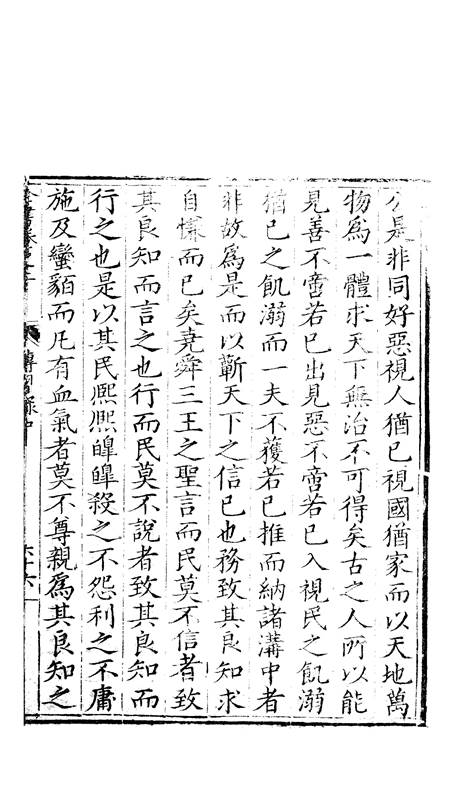 公是非同好惡視人猶己視國猶家而以天地萬
物爲一體求天下無治不可得矣古之人所以能
見善不啻若己出見惡不啻若己入視民之飢溺
猶己之飢溺而一夫不獲若己推而納諸溝中者
非故爲是而以蘄天下之信己也務致其良知求
自慊而已矣堯舜三王之聖言而民莫不信者致
其良知而言之也行而民莫不說者致其良知而
行之也是以其民熈熈皥皥殺之不怨利之不庸
施及蠻貊而凡有血氣者莫不尊親爲其良知之
傳習録中
六十六